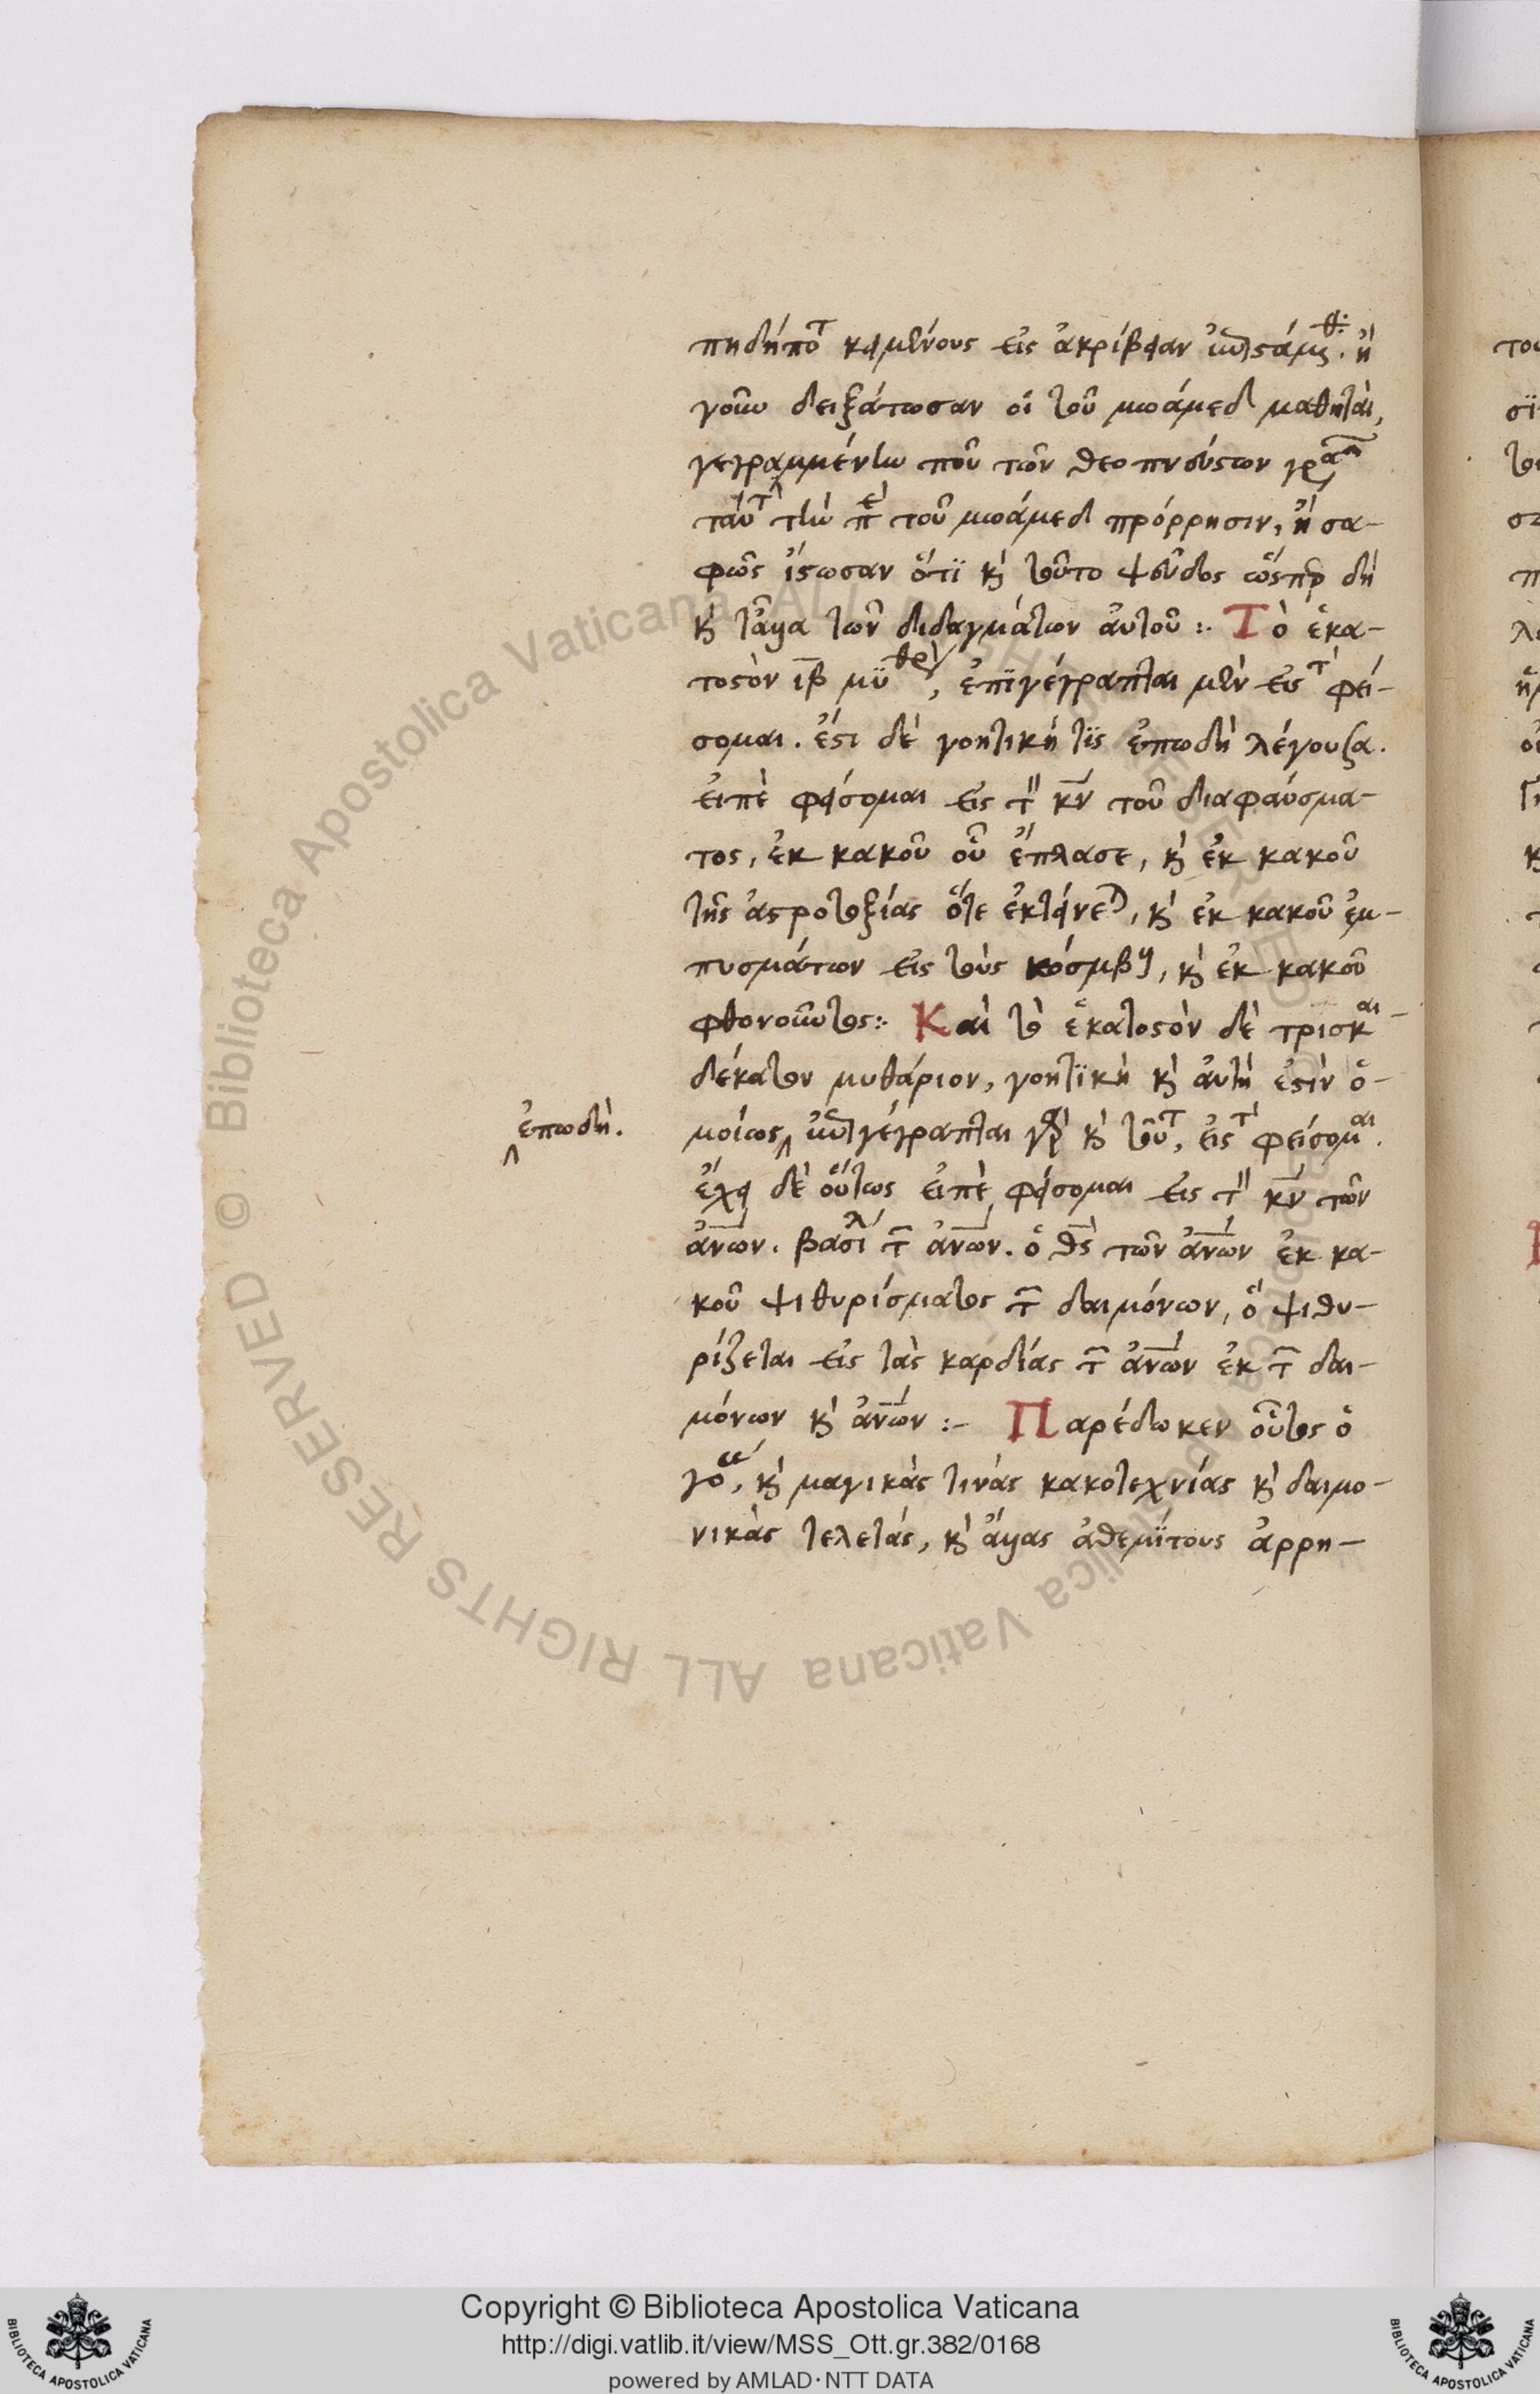 πηδήποτ κειμένους εἰς ἀκρίβειαν ἐπιστάμεθ. ἢ
γοῦν δειξάτωσαν οἱ τοῦ μωάμεδ μαθηταὶ,
γεγραμμένην που τῶν θεοπνεύστων γραμ
ταύτ τὴν πε τοῦ μωάμεδ πρόρρησιν, ἢ σα-
φῶς ἴστωσαν ὅτϊ κ τοῦτο ψεῦδος ὥσπερ δὴ
κ τἄλλα τῶν διδαγμάτων αὐτοῦ :. Τὸ ἑκα-
τοστὸν ιβ μϋθρ, ἐπϊγέγραπται μὲν εἰς τ φεί-
σομαι. ἔστι δὲ γοητική τϊς ἐπωδὴ λέγουσα.
εἰπὲ φείσομαι εἰς τ κν τοῦ διαφαύσμα-
τος, ἐκ κακοῦ οὗ ἔπλασε, κ ἐκ κακοῦ
τῆς ἀστροτοξίας ὅτε ἐκτείνε, κ ἐκ κακοῦ ἐμ-
πυσμάτων εἰς τοὺς κόσμβους, κ ἐκ κακοῦ
φθονοῦντος :. Καὶ τὸ ἑκατοστὸν δὲ τρισκαι-
δέκατον μυθάριον, γοητϊκὴ κ αὐτὴ ἐστὶν ὁ-
ἐπωδὴ.
μοίως ἐπιγέγραπται γὰρ κ τοῦτ, εἰς τ φείσομαι.
ἔχει δὲ οὕτως εἰπὲ φείσομαι εἰς τ κν τῶν
ἀνων. βασιλ τ ἀνων. ὁ θς τῶν ἀνων ἐκ κα-
κοῦ ψιθυρίσματος τ δαιμόνων, ὃ ψιθυ-
ρίζεται εἰς τὰς καρδίας τ ἀνων ἐκ τ δαι-
μόνων κ ἀνων :- Παρέδωκεν οὗτος ὁ
γο, κ μαγικάς τινὰς κακοτεχνίας κ δαιμο-
νικὰς τελετάς, κ ἄλλας ἀθεμϊτους ἀρρη-
Copyright © Biblioteca Apostolica Vaticana
http://digi.vatlib.it/view/MSS_Ott.gr.382/0168
powered by AMLAD·NTT DATA